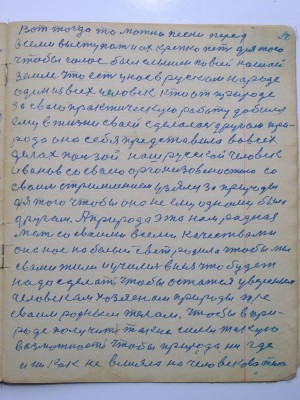 Вот тогда то можно песни перед
всеми выступат и их крепко пет для того
чтобы голос был слышен по вей нашей
земле что ест у нас в руском народе
один из всех человек кто от природе
за свою практическую работу добился
ему в жизни своей сделалас другом при-
рода она себя представила во всех
делах пользой наш руский человек
иванов со своею организованостю со
своим стримлением взялсу за природы
для того чтобы она не ему одному был
другам. А природа это нам родная
мат со своими всеми качествами
она нас на белый свет родила чтобы мы
сваими жили и училис в ней что будет
надо сделат чтобы остатся уверенным
человекам хозяенам природы пре
своим родным телам. Чтобы в при-
роде получит такие силы такую
возможност чтобы природа ни где
и ни как не влияла на человека так